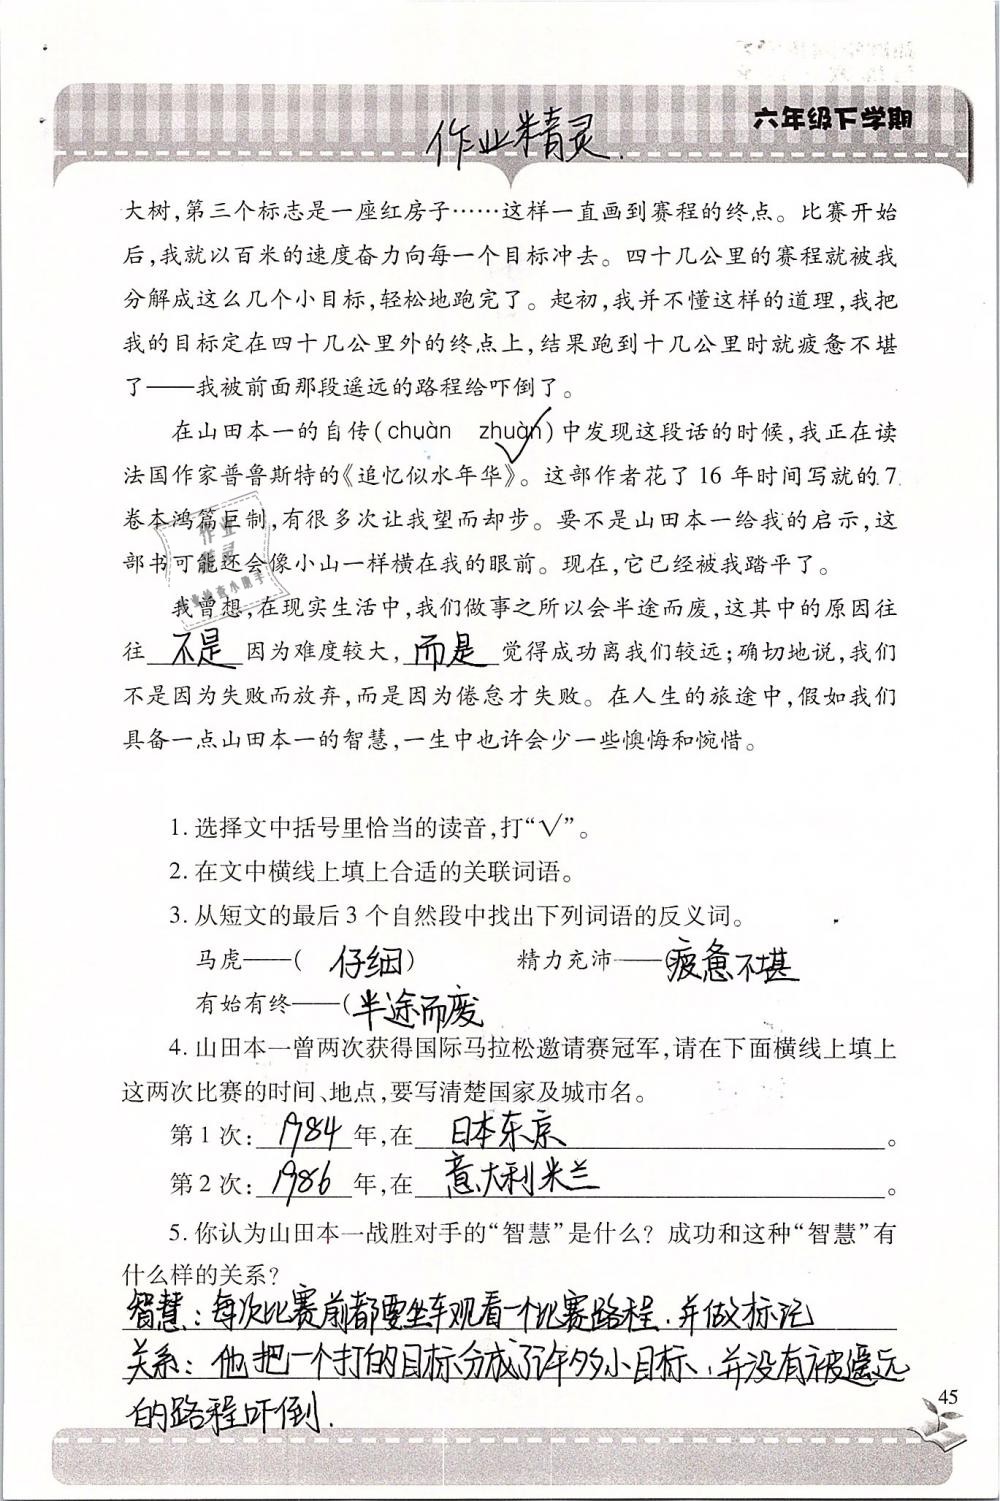 六年级下学期
作业精灵.
大树,第三个标志是一座红房子……这样一直画到赛程的终点。比赛开始
后,我就以百米的速度奋力向每一个目标冲去。四十几公里的赛程就被我
分解成这么几个小目标,轻松地跑完了。起初,我并不懂这样的道理,我把
我的目标定在四十几公里外的终点上,结果跑到十几公里时就疲惫不堪
了——我被前面那段遥远的路程给吓倒了。
在山田本一的自传(chuàn zhuàn)中发现这段话的时候,我正在读
法国作家普鲁斯特的《追忆似水年华》。这部作者花了 16 年时间写就的 7
卷本鸿篇巨制,有很多次让我望而却步。要不是山田本一给我的启示,这
部书可能还会像小山一样横在我的眼前。现在,它已经被我踏平了。
我曾想,在现实生活中,我们做事之所以会半途而废,这其中的原因往
往 不是 因为难度较大, 而是 觉得成功离我们较远;确切地说,我们
不是因为失败而放弃,而是因为倦怠才失败。在人生的旅途中,假如我们
具备一点山田本一的智慧,一生中也许会少一些懊悔和惋惜。
作业
精灵
作业检查小助手
1. 选择文中括号里恰当的读音,打“√”。
2. 在文中横线上填上合适的关联词语。
3. 从短文的最后 3 个自然段中找出下列词语的反义词。
马虎——( 仔细 ) 精力充沛——(疲惫不堪
有始有终——(半途而废
4. 山田本一曾两次获得国际马拉松邀请赛冠军,请在下面横线上填上
这两次比赛的时间、地点,要写清楚国家及城市名。
第 1 次: 1984 年,在 日本东京 。
第 2 次: 1986 年,在 意大利米兰 。
5. 你认为山田本一战胜对手的“智慧”是什么? 成功和这种“智慧”有
什么样的关系?
智慧:每次比赛前都要坐车观看一个比赛路程.并做标记
关系:他把一个打的目标分成了许多多小目标、并没有被遥远
的路程吓倒.
45